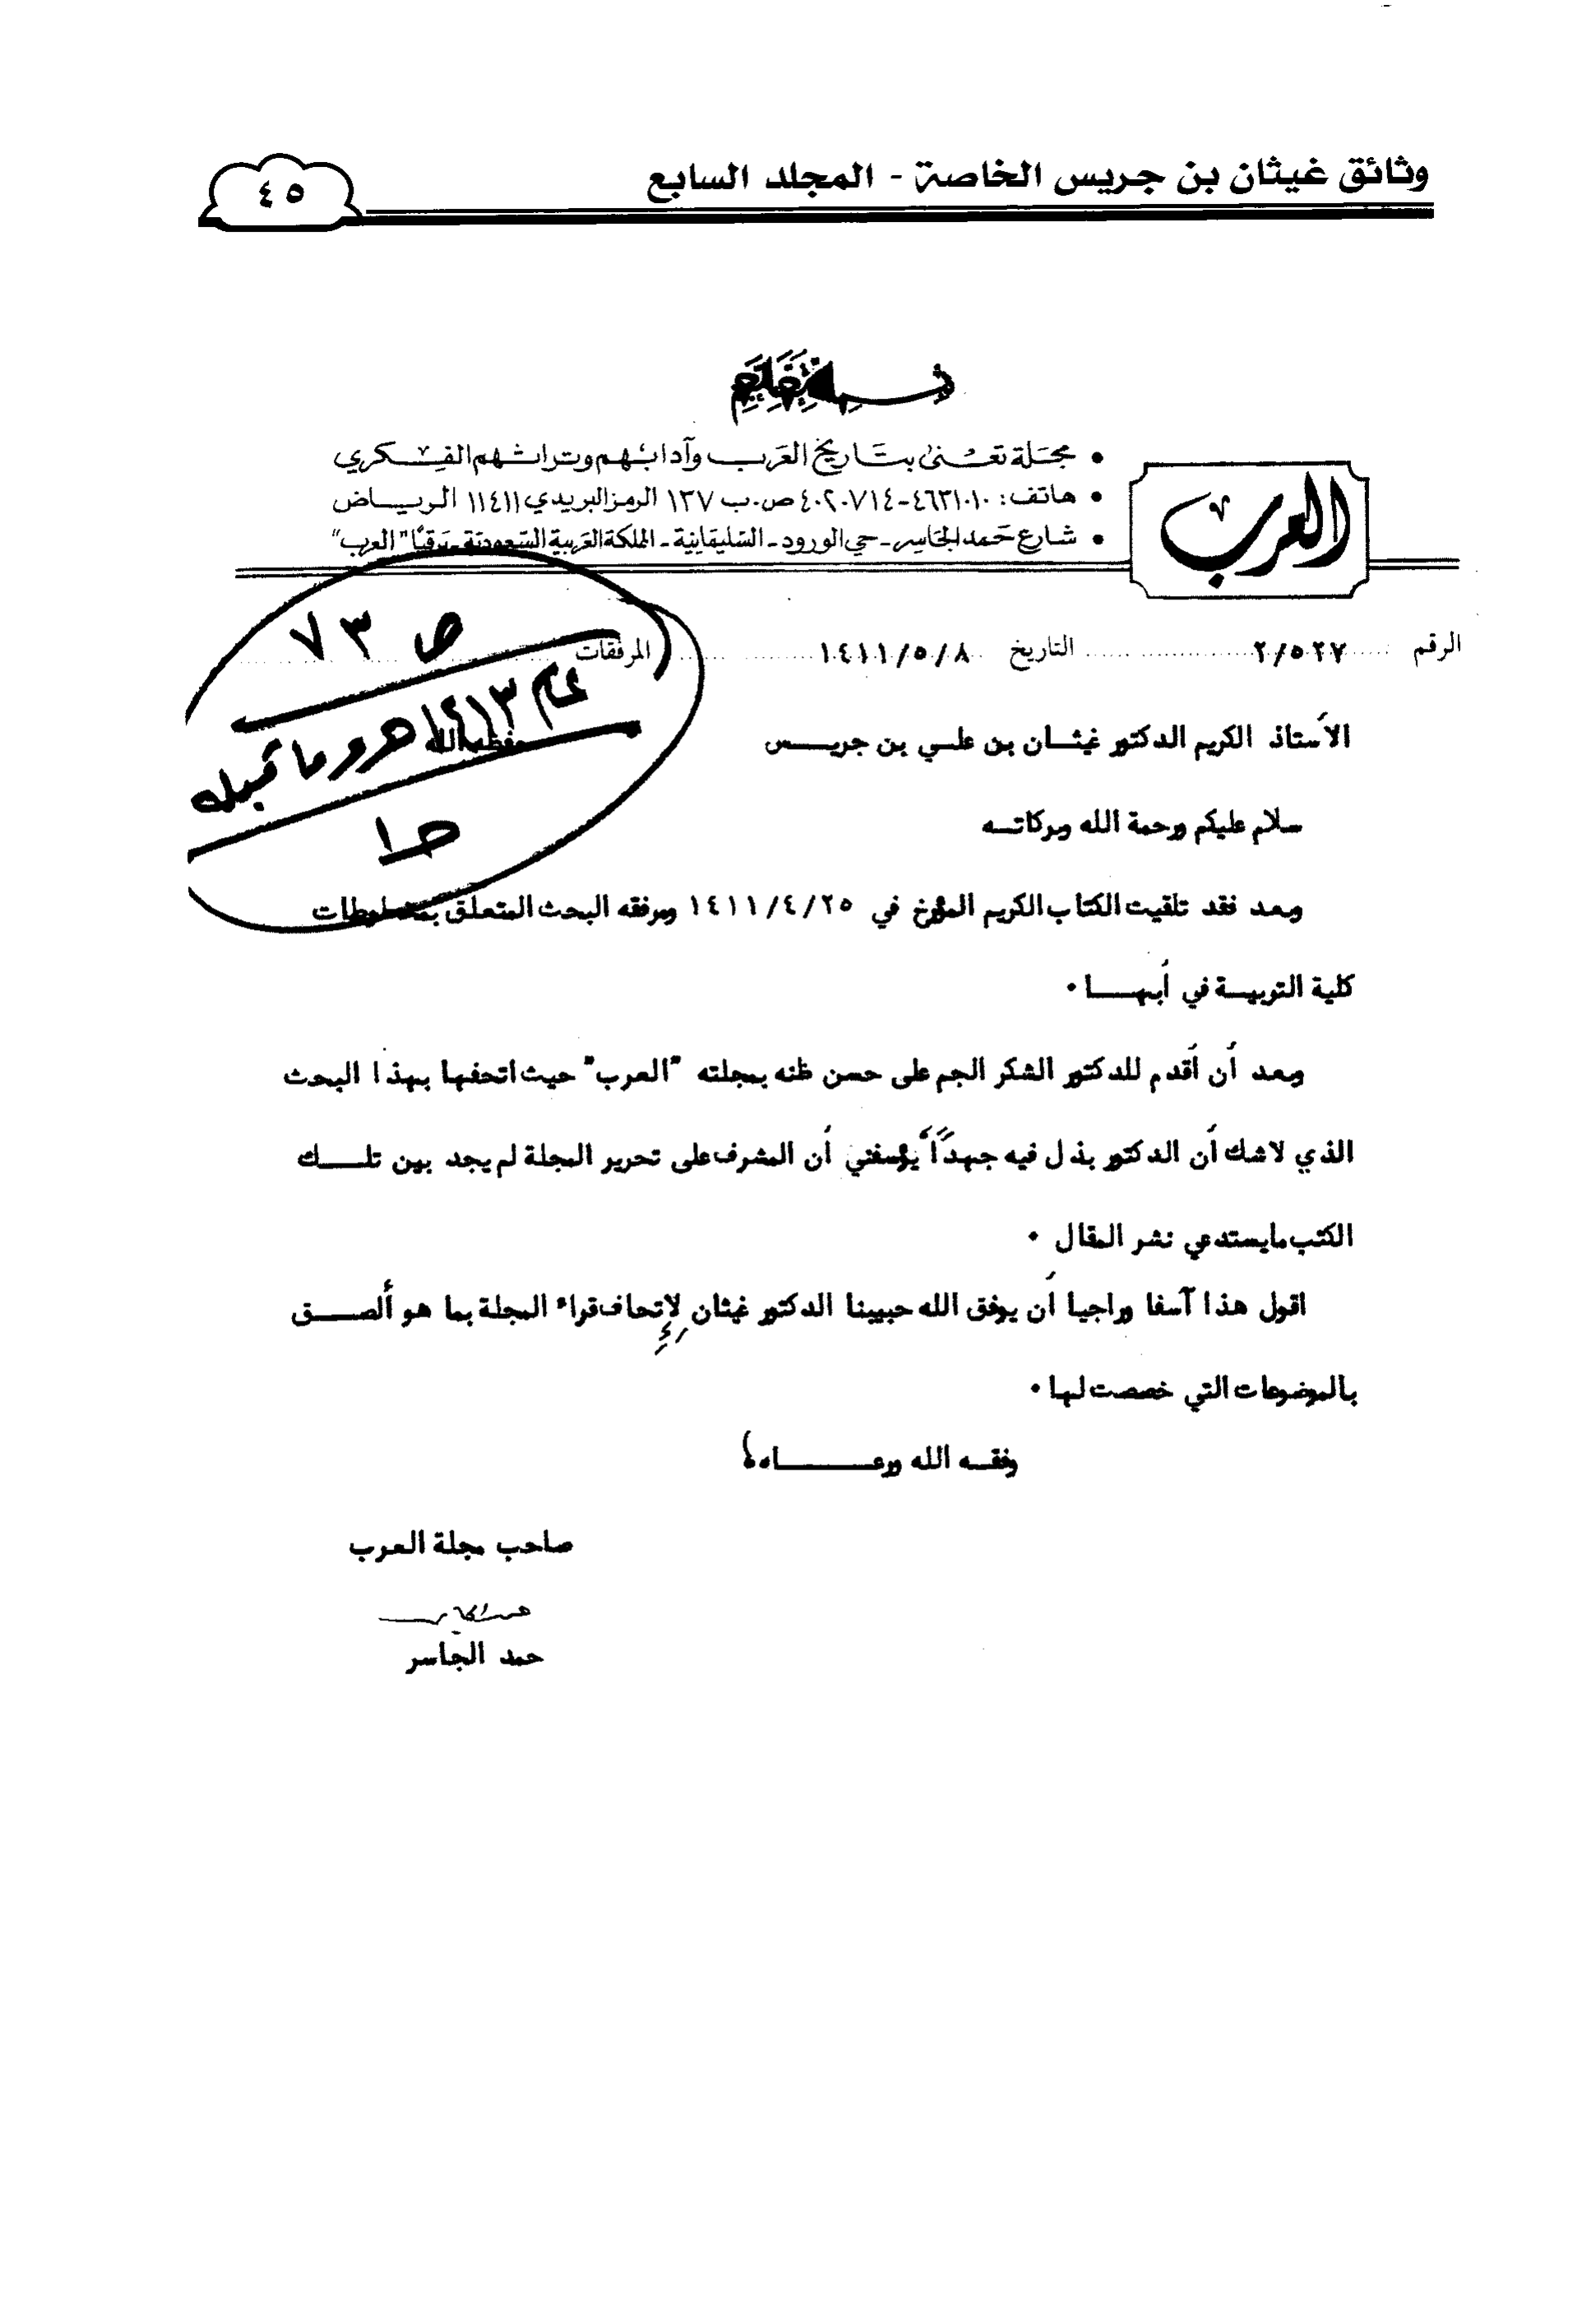 وثائق غيثان بن جريس الخاصة - المجلد السابع
٤٥
العرب
• مجلة تعنى بتاريخ العرب وآدابهم وتراثهم الفكري
• هاتف: ٤٦٣١٠١٠-٤٠٢٠٧١٤ ص.ب ١٣٧ الرمز البريدي ١١٤١١ الرياض
• شارع حمد الجاسر - حي الورود - السليمانية - المملكة العربية السعودية - برقياً "العرب"
الرقم ٢/٥٢٧ التاريخ ١٤١١/٥/٨ المرفقات
ص ٧٣
عام ١٤١٣هـ وما قبله
ج١
الأستاذ الكريم الدكتور غيثان بن علي بن جريس حفظه الله
سلام عليكم ورحمة الله وبركاته
وبعد فقد تلقيت الكتاب الكريم المؤرخ في ١٤١١/٤/٢٥ ومرفقه البحث المتعلق بمخطوطات
كلية التربية في أبها .
وبعد أن أقدم للدكتور الشكر الجم على حسن ظنه بمجلته "العرب" حيث اتحفها بهذا البحث
الذي لاشك أن الدكتور بذل فيه جهداً يؤسفني أن المشرف على تحرير المجلة لم يجد بين تلك
الكتب مايستدعي نشر المقال .
اقول هذا آسفا وراجيا أن يوفق الله حبيبنا الدكتور غيثان لإتحاف قراء المجلة بما هو ألصق
بالموضوعات التي خصصت لها .
وفقه الله ورعاه
صاحب مجلة العرب
حمد الجاسر